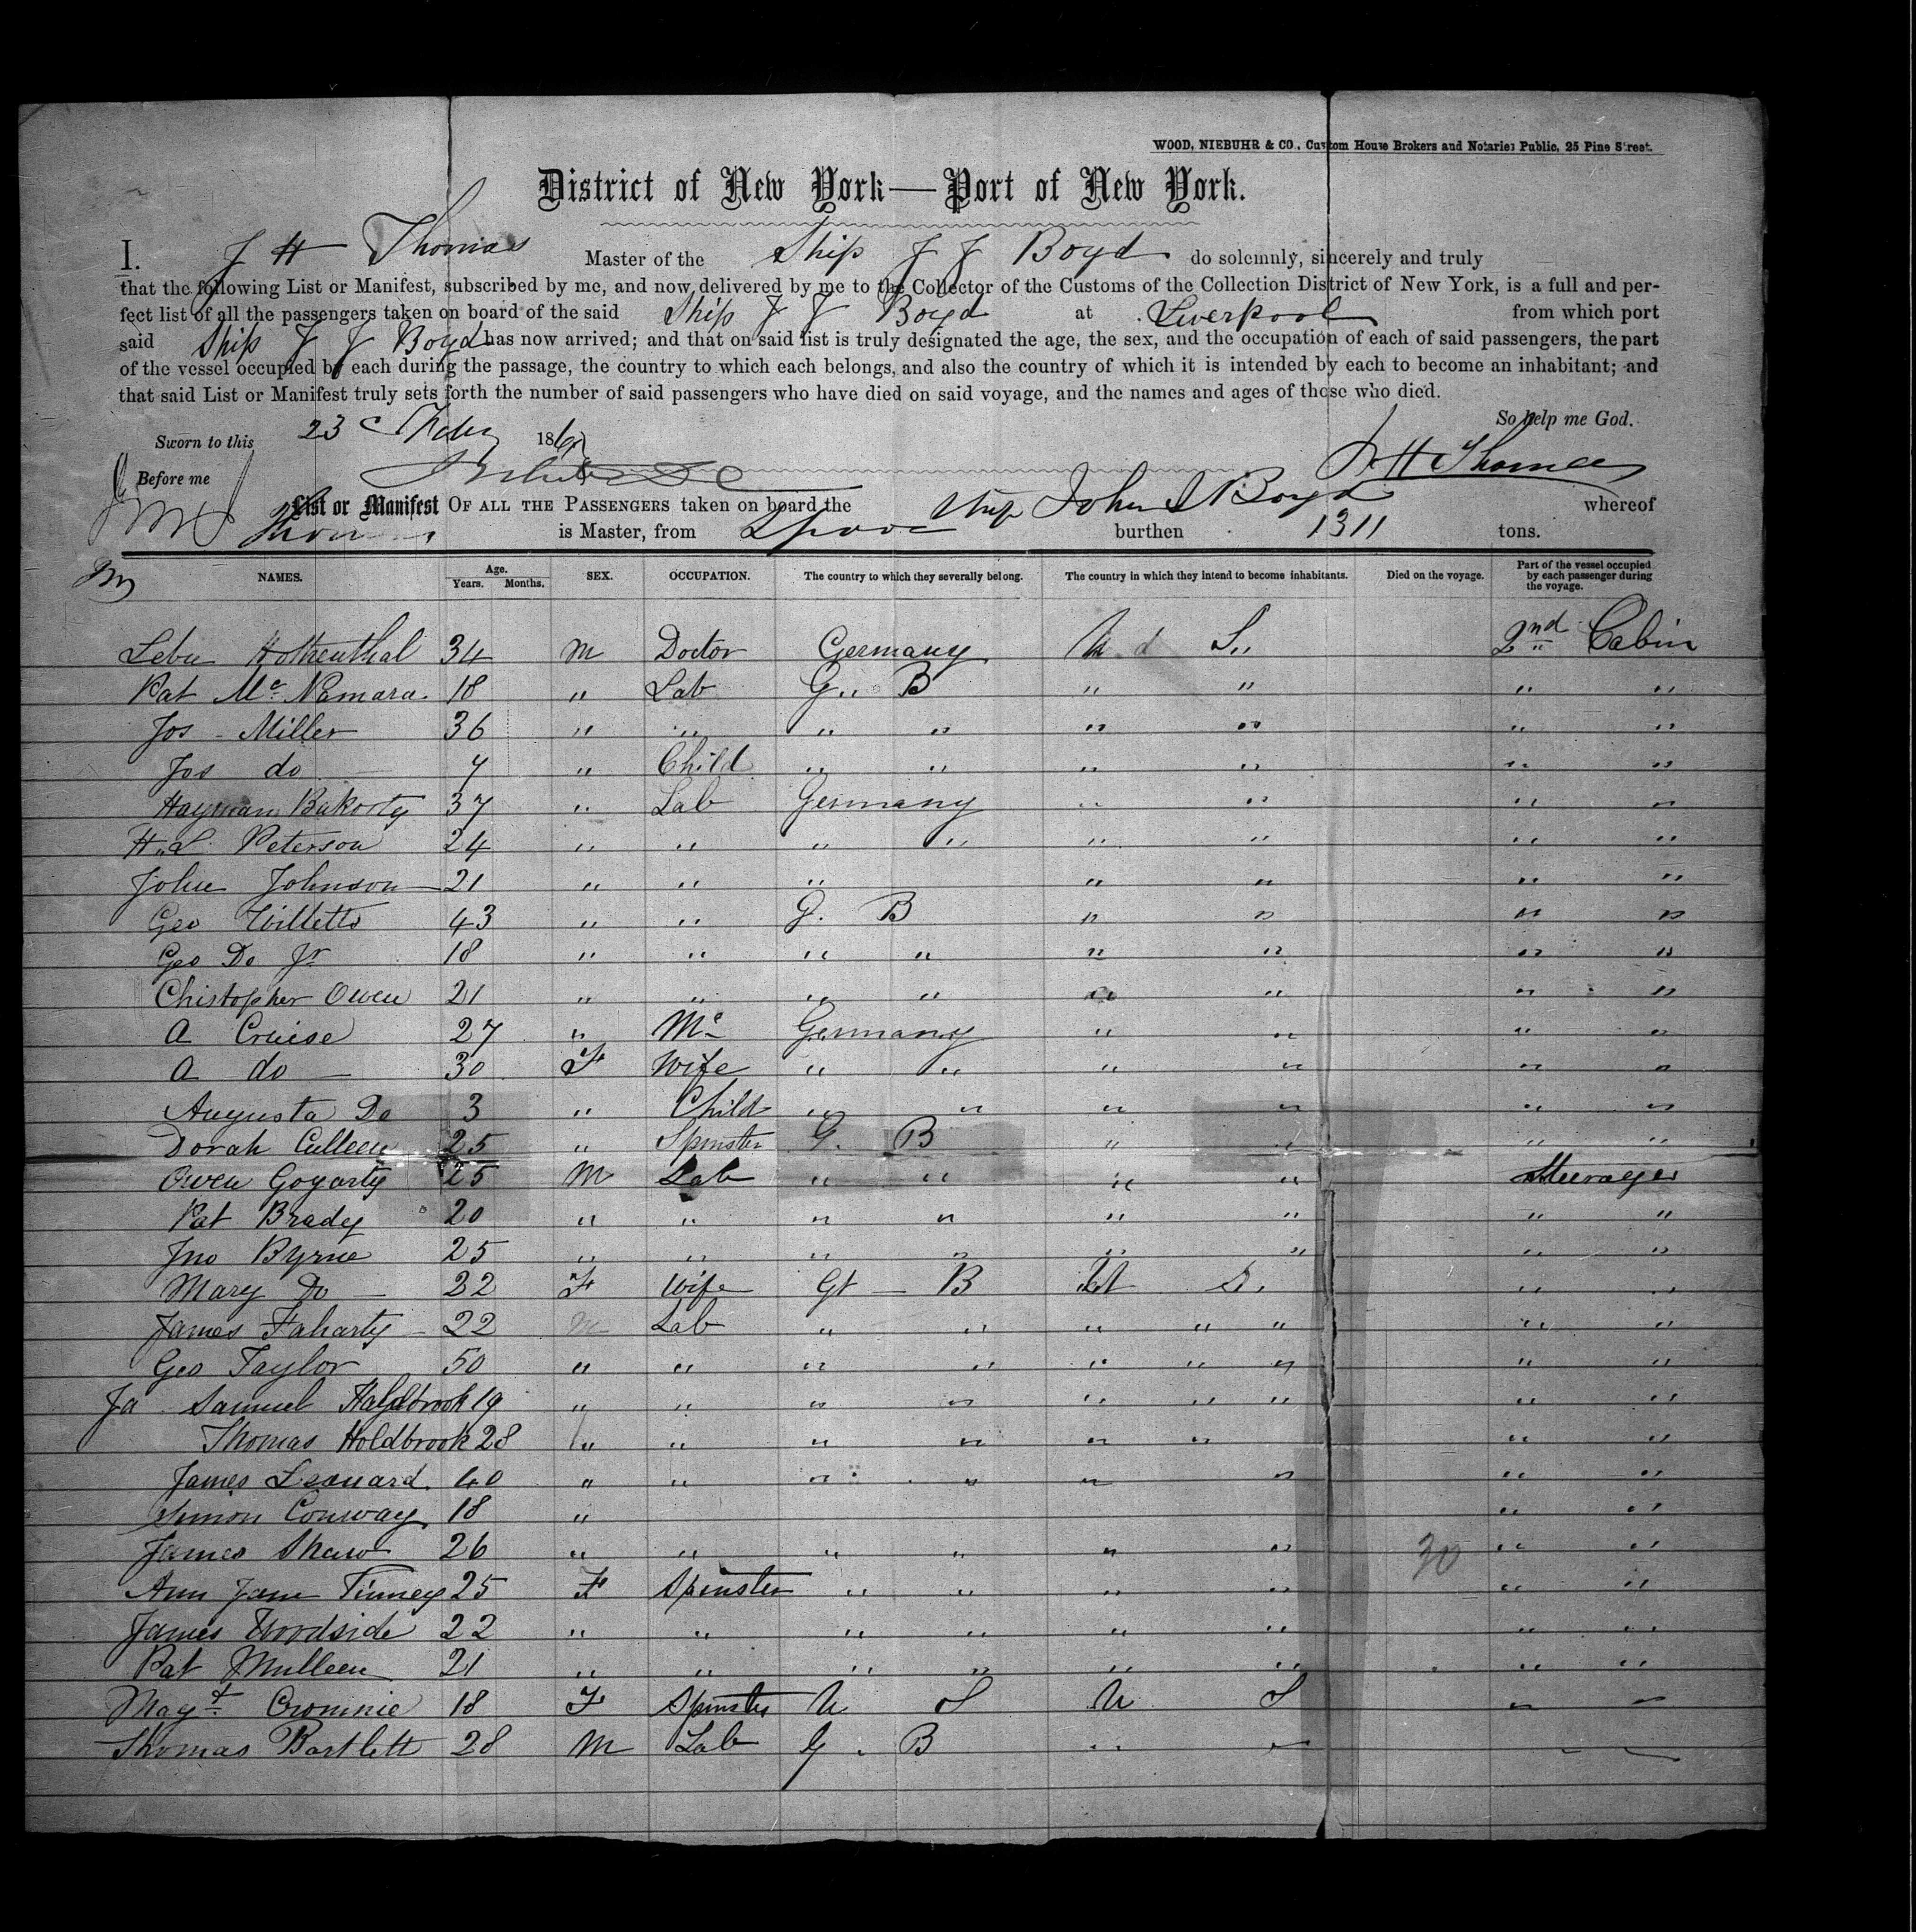 WOOD, NIEBUHR & CO., Custom House Brokers and Notaries Public, 25 Pine Street.
District of New York—Port of New York.
I. J H Thomas Master of the Ship J J Boyd do solemnly, sincerely and truly
that the following List or Manifest, subscribed by me, and now delivered by me to the Collector of the Customs of the Collection District of New York, is a full and per-
fect list of all the passengers taken on board of the said Ship J J Boyd at Liverpool from which port
said Ship J J Boyd has now arrived; and that on said list is truly designated the age, the sex, and the occupation of each of said passengers, the part
of the vessel occupied by each during the passage, the country to which each belongs, and also the country of which it is intended by each to become an inhabitant; and
that said List or Manifest truly sets forth the number of said passengers who have died on said voyage, and the names and ages of those who died.
So help me God.
Sworn to this 23 Feby 186
Before me J H Thomas
List or Manifest OF ALL THE PASSENGERS taken on board the Ship John J Boyd whereof
Thomas is Master, from Lpool burthen 1311 tons.
NAMES. Age. Years. Months. SEX. OCCUPATION. The country to which they severally belong. The country in which they intend to become inhabitants. Died on the voyage. Part of the vessel occupied by each passenger during the voyage.
34 M Doctor Germany U d S,, 2nd Cabin
Pat Mc Namara 18 " Lab G,, B " " " "
Jos - Miller 36 " " " " " " " "
Jos do 7 " Child " " " " " "
Hayman 37 " Lab Germany " " " "
H,, L Peterson 24 " " " " " " " "
John Johnson 21 " " " " " " "
Geo Willetts 43 " " G. B " " " "
Geo Do Jr 18 " " " " " " " "
Chistopher Owen 21 " " " " " " " "
A Cruise 27 " Mc Germany " " " "
A do — 30 F Wife " " " " " "
Augusta Do 3 " Child " " " " " "
Dorah Culleen 25 " Spinster G. B " " " "
Owen Gogarty 25 M Lab " " " " Steerage
Pat Brady 20 " " " " " " " "
Jno Byrne 25 " " " " " " " "
Mary Do — 22 F Wife Gt — B Ut S. " "
James Faharty 22 M Lab " " " " " " "
Geo Taylor 50 " " " " " " " " "
Ja Samuel Holdbrook 19 " " " " " " " " "
Thomas Holdbrook 28 " " " " " " " "
James Leonard. 40 " " " " " " " "
Simon Conway 18 " " "
James Shaw 26 " " " " " " 30 " "
Ann Jane Finney 25 F Spinster " " " " " "
James Woodside 22 " " " " " " " "
Pat Mulleen 21 " " " " " " " "
Magt Crommie 18 F Spinster U S U S " "
Thomas Bartlett 28 M Lab G. B " " " "